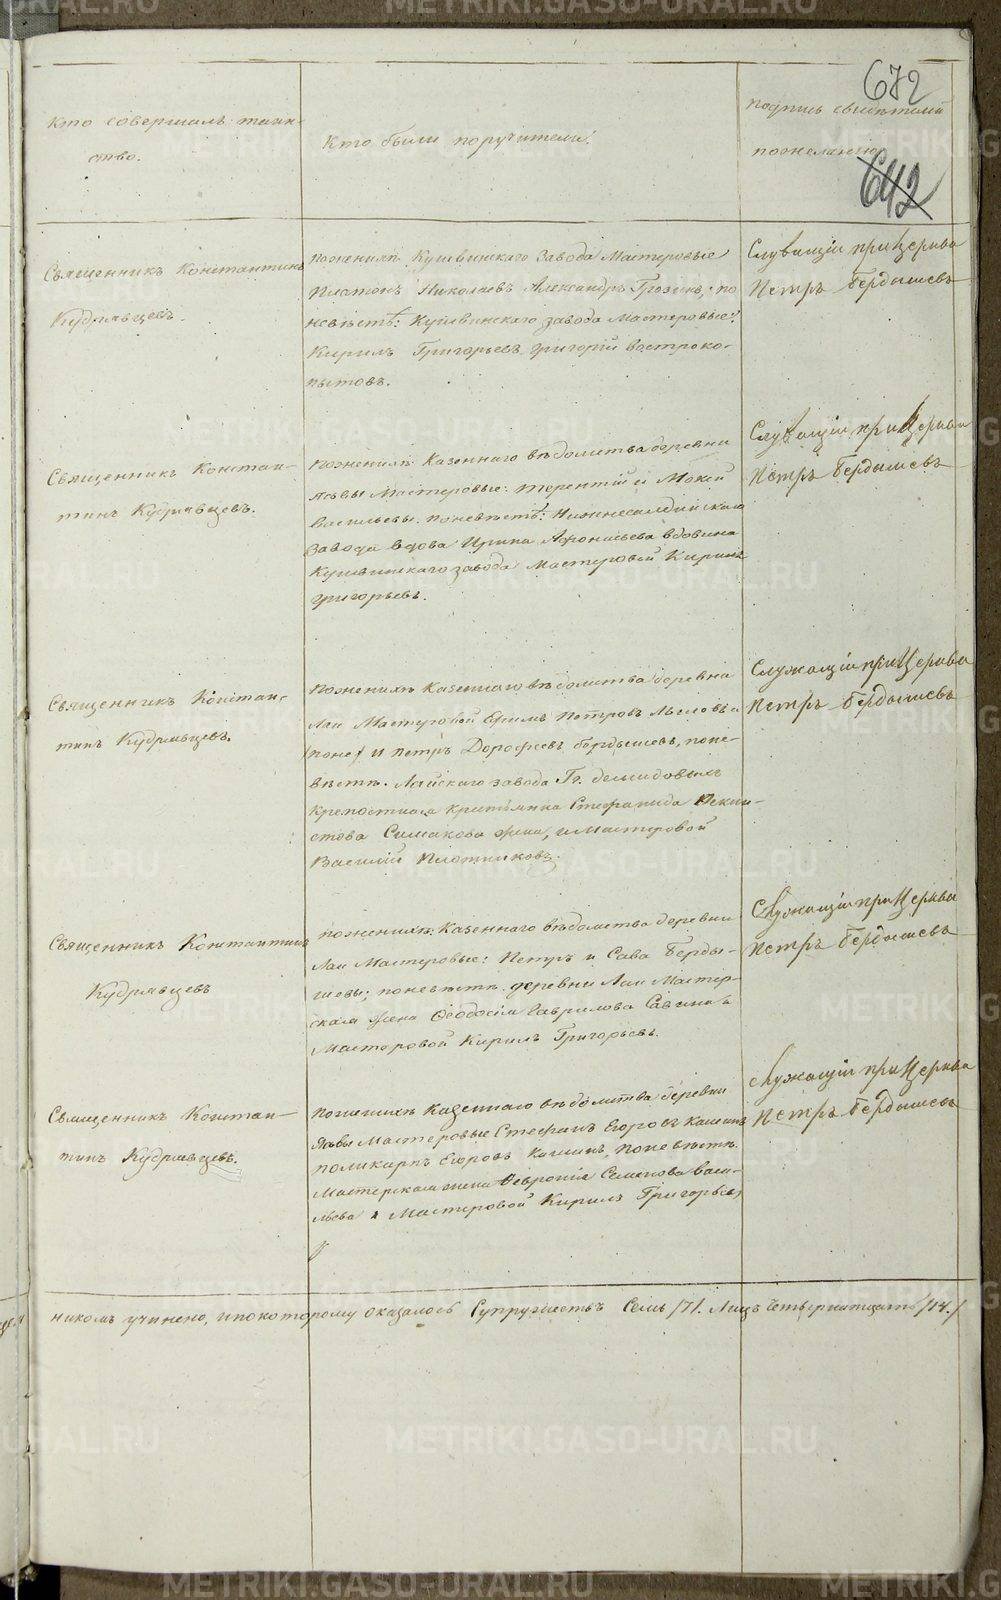 672
642
Кто совершалъ таин-
ство.
Кто были поручители.
Подпись свидѣтелей
по желанію
Священникъ Константинъ
Кудрявцевъ.
По женихѣ: Кушвинскаго завода Мастеровые
Платонъ Николаевъ Александръ Грозинъ, по
невѣстѣ: Кушвинскаго завода Мастеровые:
Кирилъ Григорьевъ Григорій Вострoко-
пытовъ.
Служащій при Церкви
Петръ Бердышевъ
Священникъ Констан-
тинъ Кудрявцевъ.
По женихѣ Казеннаго вѣдомства деревни
Мастеровые: Терентій и Мокей
Васильевы. По невѣстѣ: Нижнесалдинскаго
завода вдова Ирина Афонасьева Вдовина
Кушвинскаго завода Мастеровой Кирилъ
Григорьевъ.
Служащій при Церкви
Петръ Бердышевъ
Священникъ Констан-
тинъ Кудрявцевъ.
По женихѣ Казеннаго вѣдомства деревни
Лаи Мастеровой Ефимъ Петровъ
и Петръ Дорофеевъ Бердышевъ, по не-
вѣстѣ. Лайскаго завода Гг. Демидовыхъ
крепостнаго крестьянина Стефанида
Симакова жена, и Мастеровой
Василій Плотниковъ.
Служащій при Церкви
Петръ Бердышевъ
Священникъ Константинъ
Кудрявцевъ
По женихѣ: Казеннаго вѣдомства деревни
Лаи Мастеровые: Петръ и Сава Берды-
шевы; по невѣстѣ. деревни Лаи Мастер-
ская жена Ѳеодосія Гаврилова
Мастеровой Кирилъ Григорьевъ.
Служащій при Церкви
Петръ Бердышевъ
Священникъ Констан-
тинъ Кудрявцевъ.
По женихѣ Казеннаго вѣдомства деревни
Мастеровые Стефанъ Егоровъ
Поликарпъ Егоровъ По невѣстѣ.
Мастерская жена Ѳевронія Семенова Васи-
льева и Мастеровой Кирилъ Григорьевъ
Служащій при Церкви
Петръ Бердышевъ
никомъ учинено, и по которому оказалось Супружествъ Семь /7/. Лицъ четырнатцать /14./